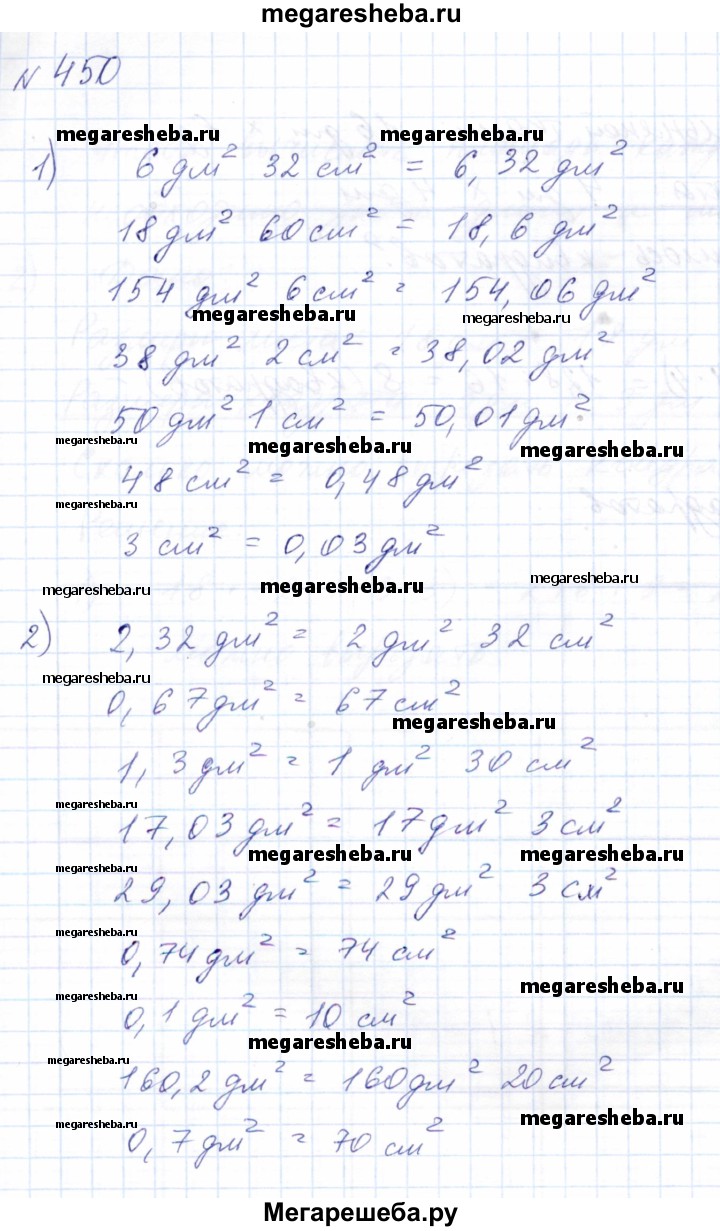 megaresheba.ru
N 450
megaresheba.ru megaresheba.ru
1) 6 дм² 32 см² = 6,32 дм²
18 дм² 60 см² = 18,6 дм²
154 дм² 6 см² = 154,06 дм²
megaresheba.ru megaresheba.ru
38 дм² 2 см² = 38,02 дм²
50 дм² 1 см² = 50,01 дм²
megaresheba.ru megaresheba.ru megaresheba.ru
48 см² = 0,48 дм²
megaresheba.ru
3 см² = 0,03 дм²
megaresheba.ru megaresheba.ru megaresheba.ru
2) 2,32 дм² = 2 дм² 32 см²
megaresheba.ru
0,67 дм² = 67 см²
megaresheba.ru
1,3 дм² = 1 дм² 30 см²
megaresheba.ru
17,03 дм² = 17 дм² 3 см²
megaresheba.ru megaresheba.ru megaresheba.ru
29,03 дм² = 29 дм² 3 см²
megaresheba.ru
0,74 дм² = 74 см²
megaresheba.ru
megaresheba.ru
0,1 дм² = 10 см²
megaresheba.ru
megaresheba.ru
160,2 дм² = 160 дм² 20 см²
megaresheba.ru megaresheba.ru
0,7 дм² = 70 см²
Мегарешеба.ру